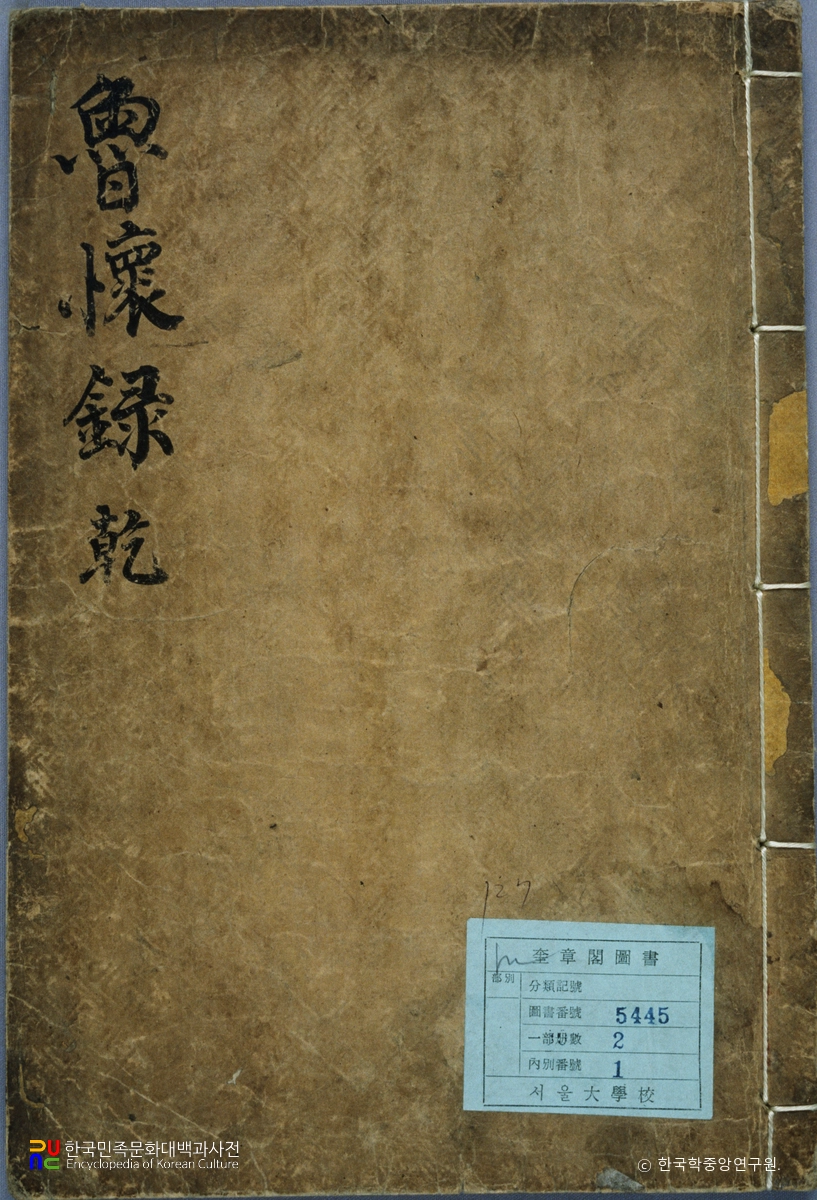 魯懷錄 乾
127
奎章閣圖書
部別
分類記號
圖書番號 5445
一部冊數 2
內別番號 1
서울大學校
한국민족문화대백과사전
Encyclopedia of Korean Culture
© 한국학중앙연구원.